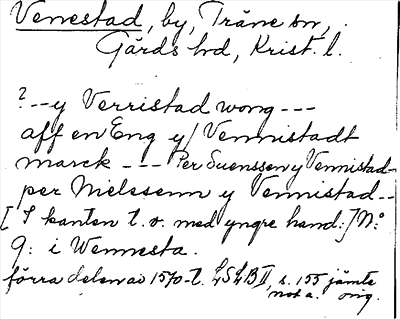 Venestad, by, Träne sn,
Gärds hd, Krist. l.
? -- y Verristad wong ---
aff en Eng y / Vennistadt
marck --- Per Suenssen y Vennistad--
per Nielssenn y Vennistad--
[I kanten t. v. med yngre hand:] N:o
9: i Wennesta.
förra delen av 1570-t. LSLB II, s. 155 jämte
not a. orig.